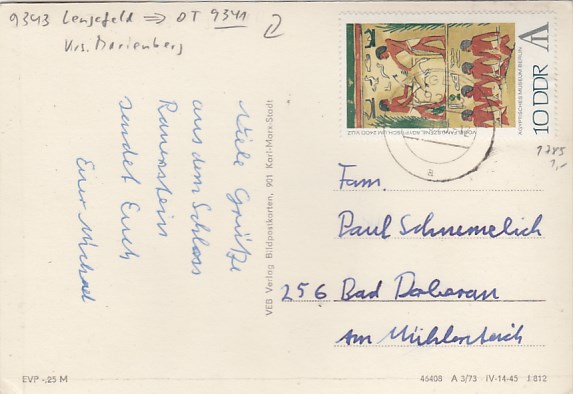 9343 Lengefeld ⇒ OT 9341
Krs. Marienberg
Viele Grüße
aus dem Schloss
Rauenstein
sendet Euch
Euer Michael
VEB Verlag Bildpostkarten, 901 Karl-Marx-Stadt
VOGELFANGSZENE, ÄGYPTISCH, UM 2400 V.U.Z.
ÄGYPTISCHES MUSEUM BERLIN
10 DDR
1785
1,-
a
Fam.
Paul Schnemelich
256 Bad Doberan
Am Mühlenteich
EVP -,25 M
46408 A 3/73 IV-14-45 J 812